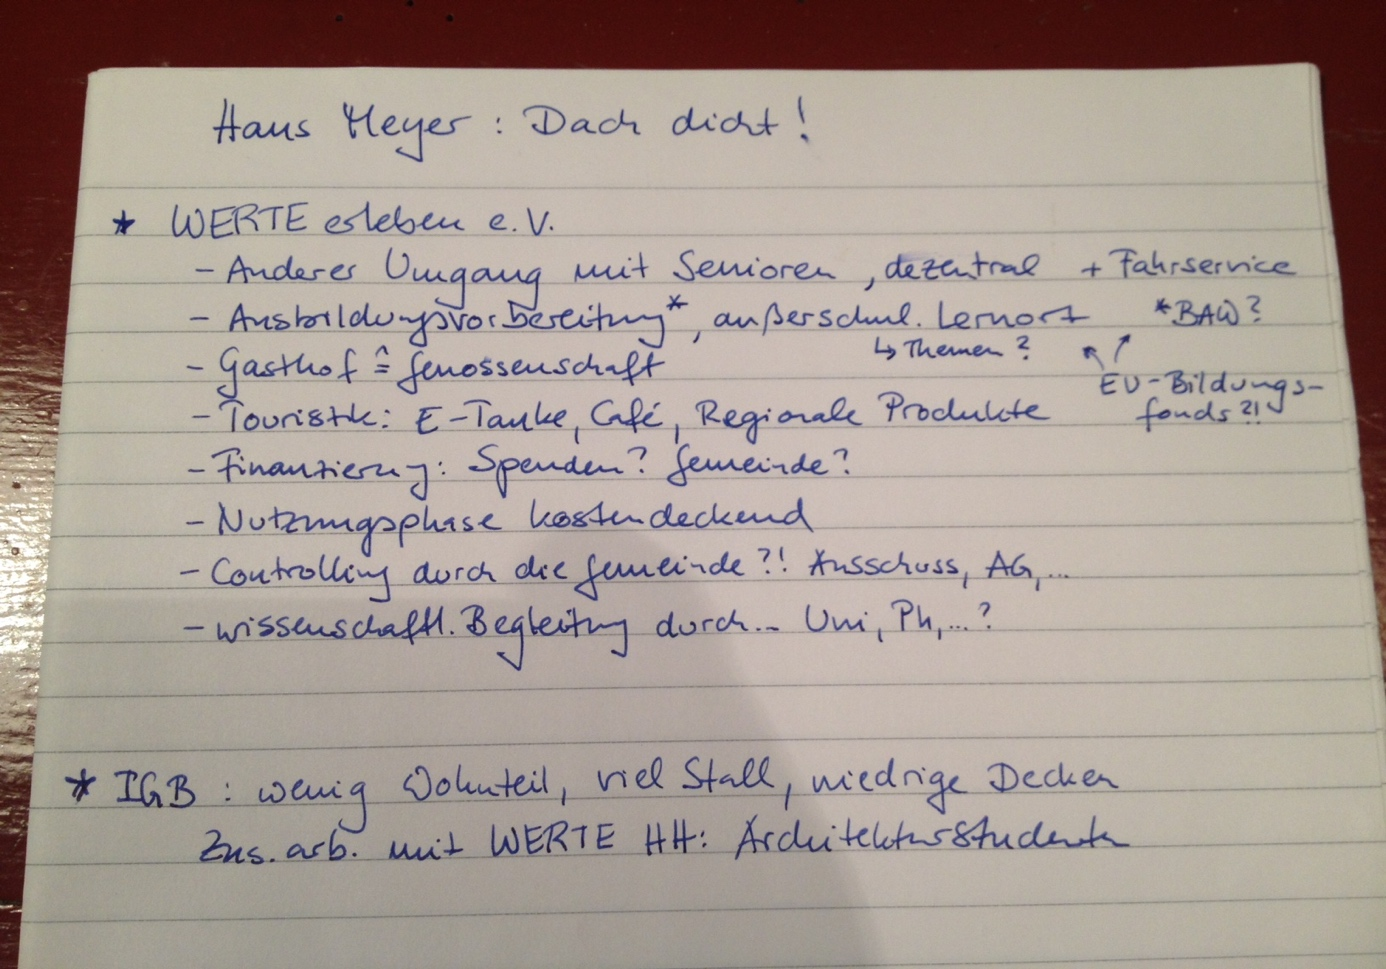 Haus Meyer : Dach dicht!
* WERTE erleben e.V.
- Anderer Umgang mit Senioren, dezentral + Fahrservice
- Ausbildungsvorbereitung*, außerschul. Lernort *BAW?
↳ Themen?
- Gasthof ≙ Genossenschaft
EU-Bildungs-
fonds?!
- Touristik: E-Tanke, Café, Regionale Produkte
- Finanzierung: Spenden? Gemeinde?
- Nutzungsphase kostendeckend
- Controlling durch die Gemeinde?! Ausschuss, AG,...
- wissenschaftl. Begleitung durch... Uni, Ph,...?
* IGB : wenig Wohnteil, viel Stall, niedrige Decken
Zus.arb. mit WERTE HH: Architekturstudenten